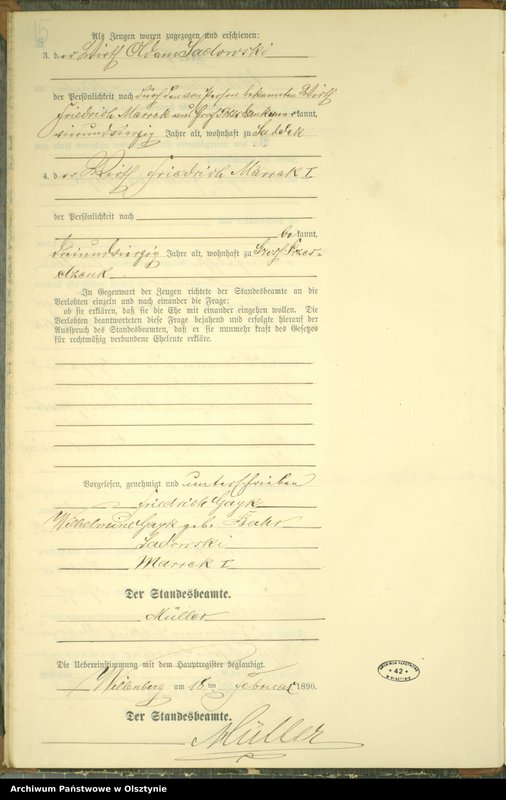 Als Zeugen waren zugezogen und erschienen:
3. der Wirth Adam Sadowski
der Persönlichkeit nach durch den von Person bekannten Wirth
Friedrich Marrek aus Groß Przesdzenk anerkannt,
vierundvierzig Jahre alt, wohnhaft zu Saddek
4. der Wirth Friedrich Marrek I.
der Persönlichkeit nach
bekannt,
dreiundvierzig Jahre alt, wohnhaft zu Groß Przes-
dzenk
In Gegenwart der Zeugen richtete der Standesbeamte an die
Verlobten einzeln und nach einander die Frage:
ob sie erklären, daß sie die Ehe mit einander eingehen wollen. Die
Verlobten beantworteten diese Frage bejahend und erfolgte hierauf der
Ausspruch des Standesbeamten, daß er sie nunmehr kraft des Gesetzes
für rechtmäßig verbundene Eheleute erkläre.
Vorgelesen, genehmigt und unterschrieben
Friedrich Gayk
Wilhelmine Gayk geb. Bahr
Sadowski
Marrek I.
Der Standesbeamte.
Müller
Die Uebereinstimmung mit dem Hauptregister beglaubigt.
Willenberg am 18ten Februar 1890.
Der Standesbeamte.
Müller
42
Archiwum Państwowe w Olsztynie